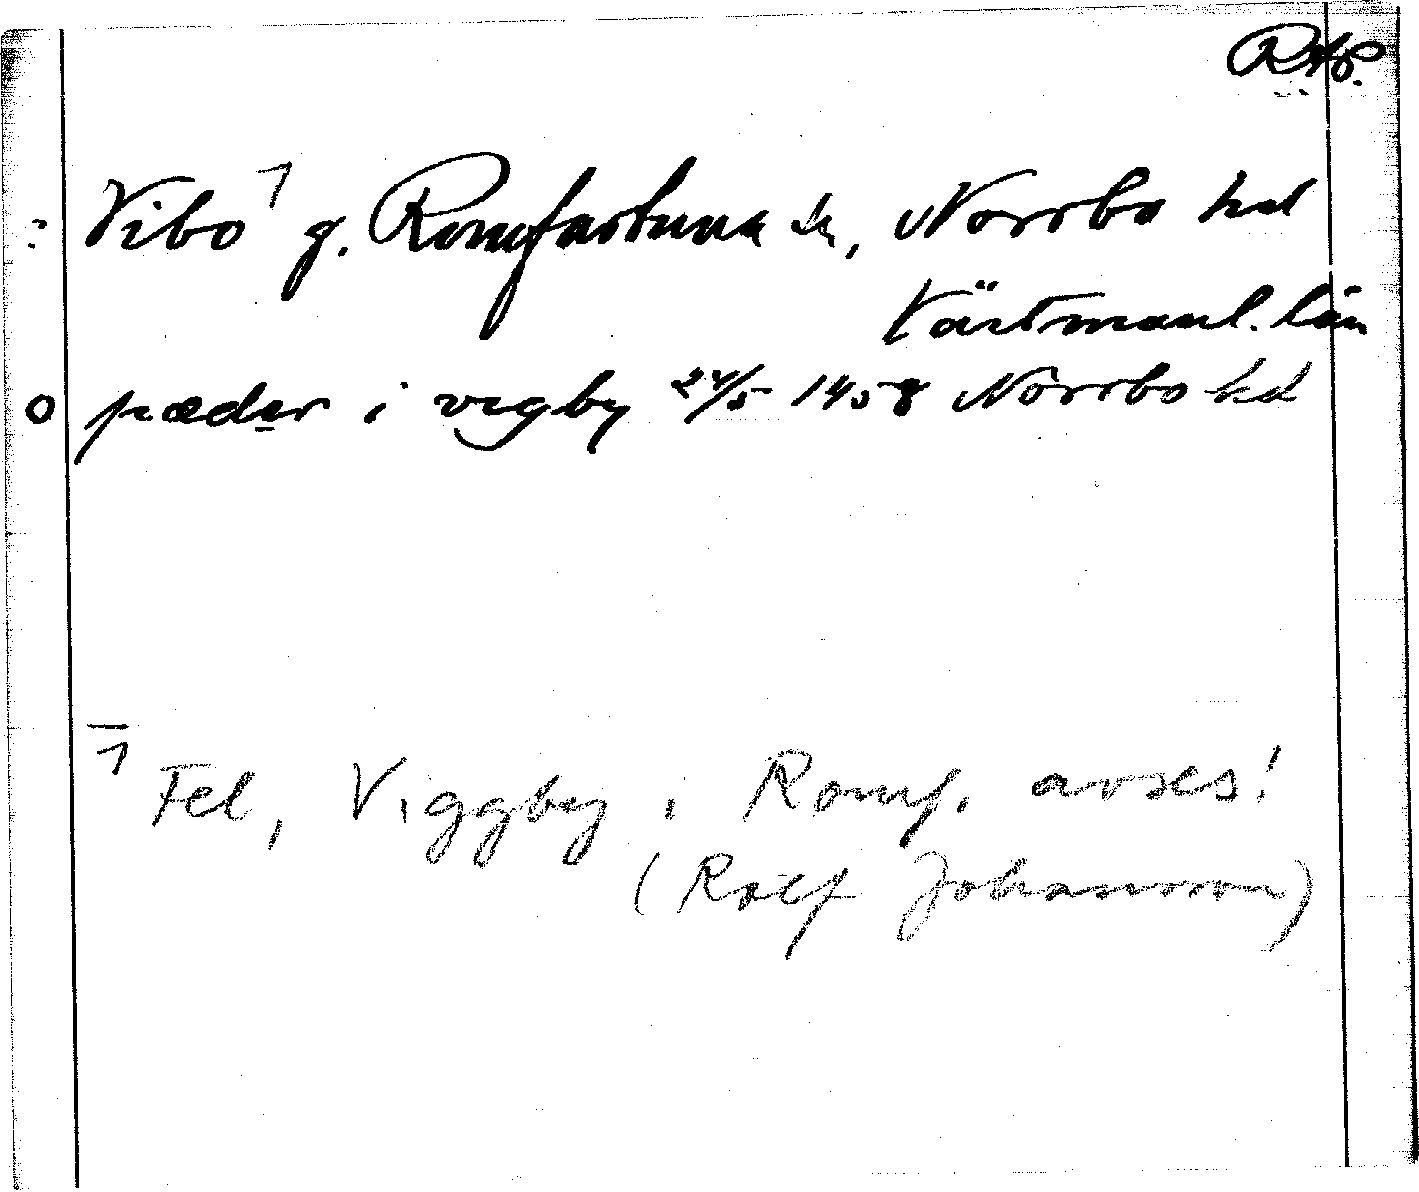 Vibo ⁊ g. Romfartuna sn, Norrbo hd
Västmanl. län
pædær i vegby 24/5 1458 Norrbo hd
⁊ Fel, Viggby i Romf. avses!
(Rolf Johansson)